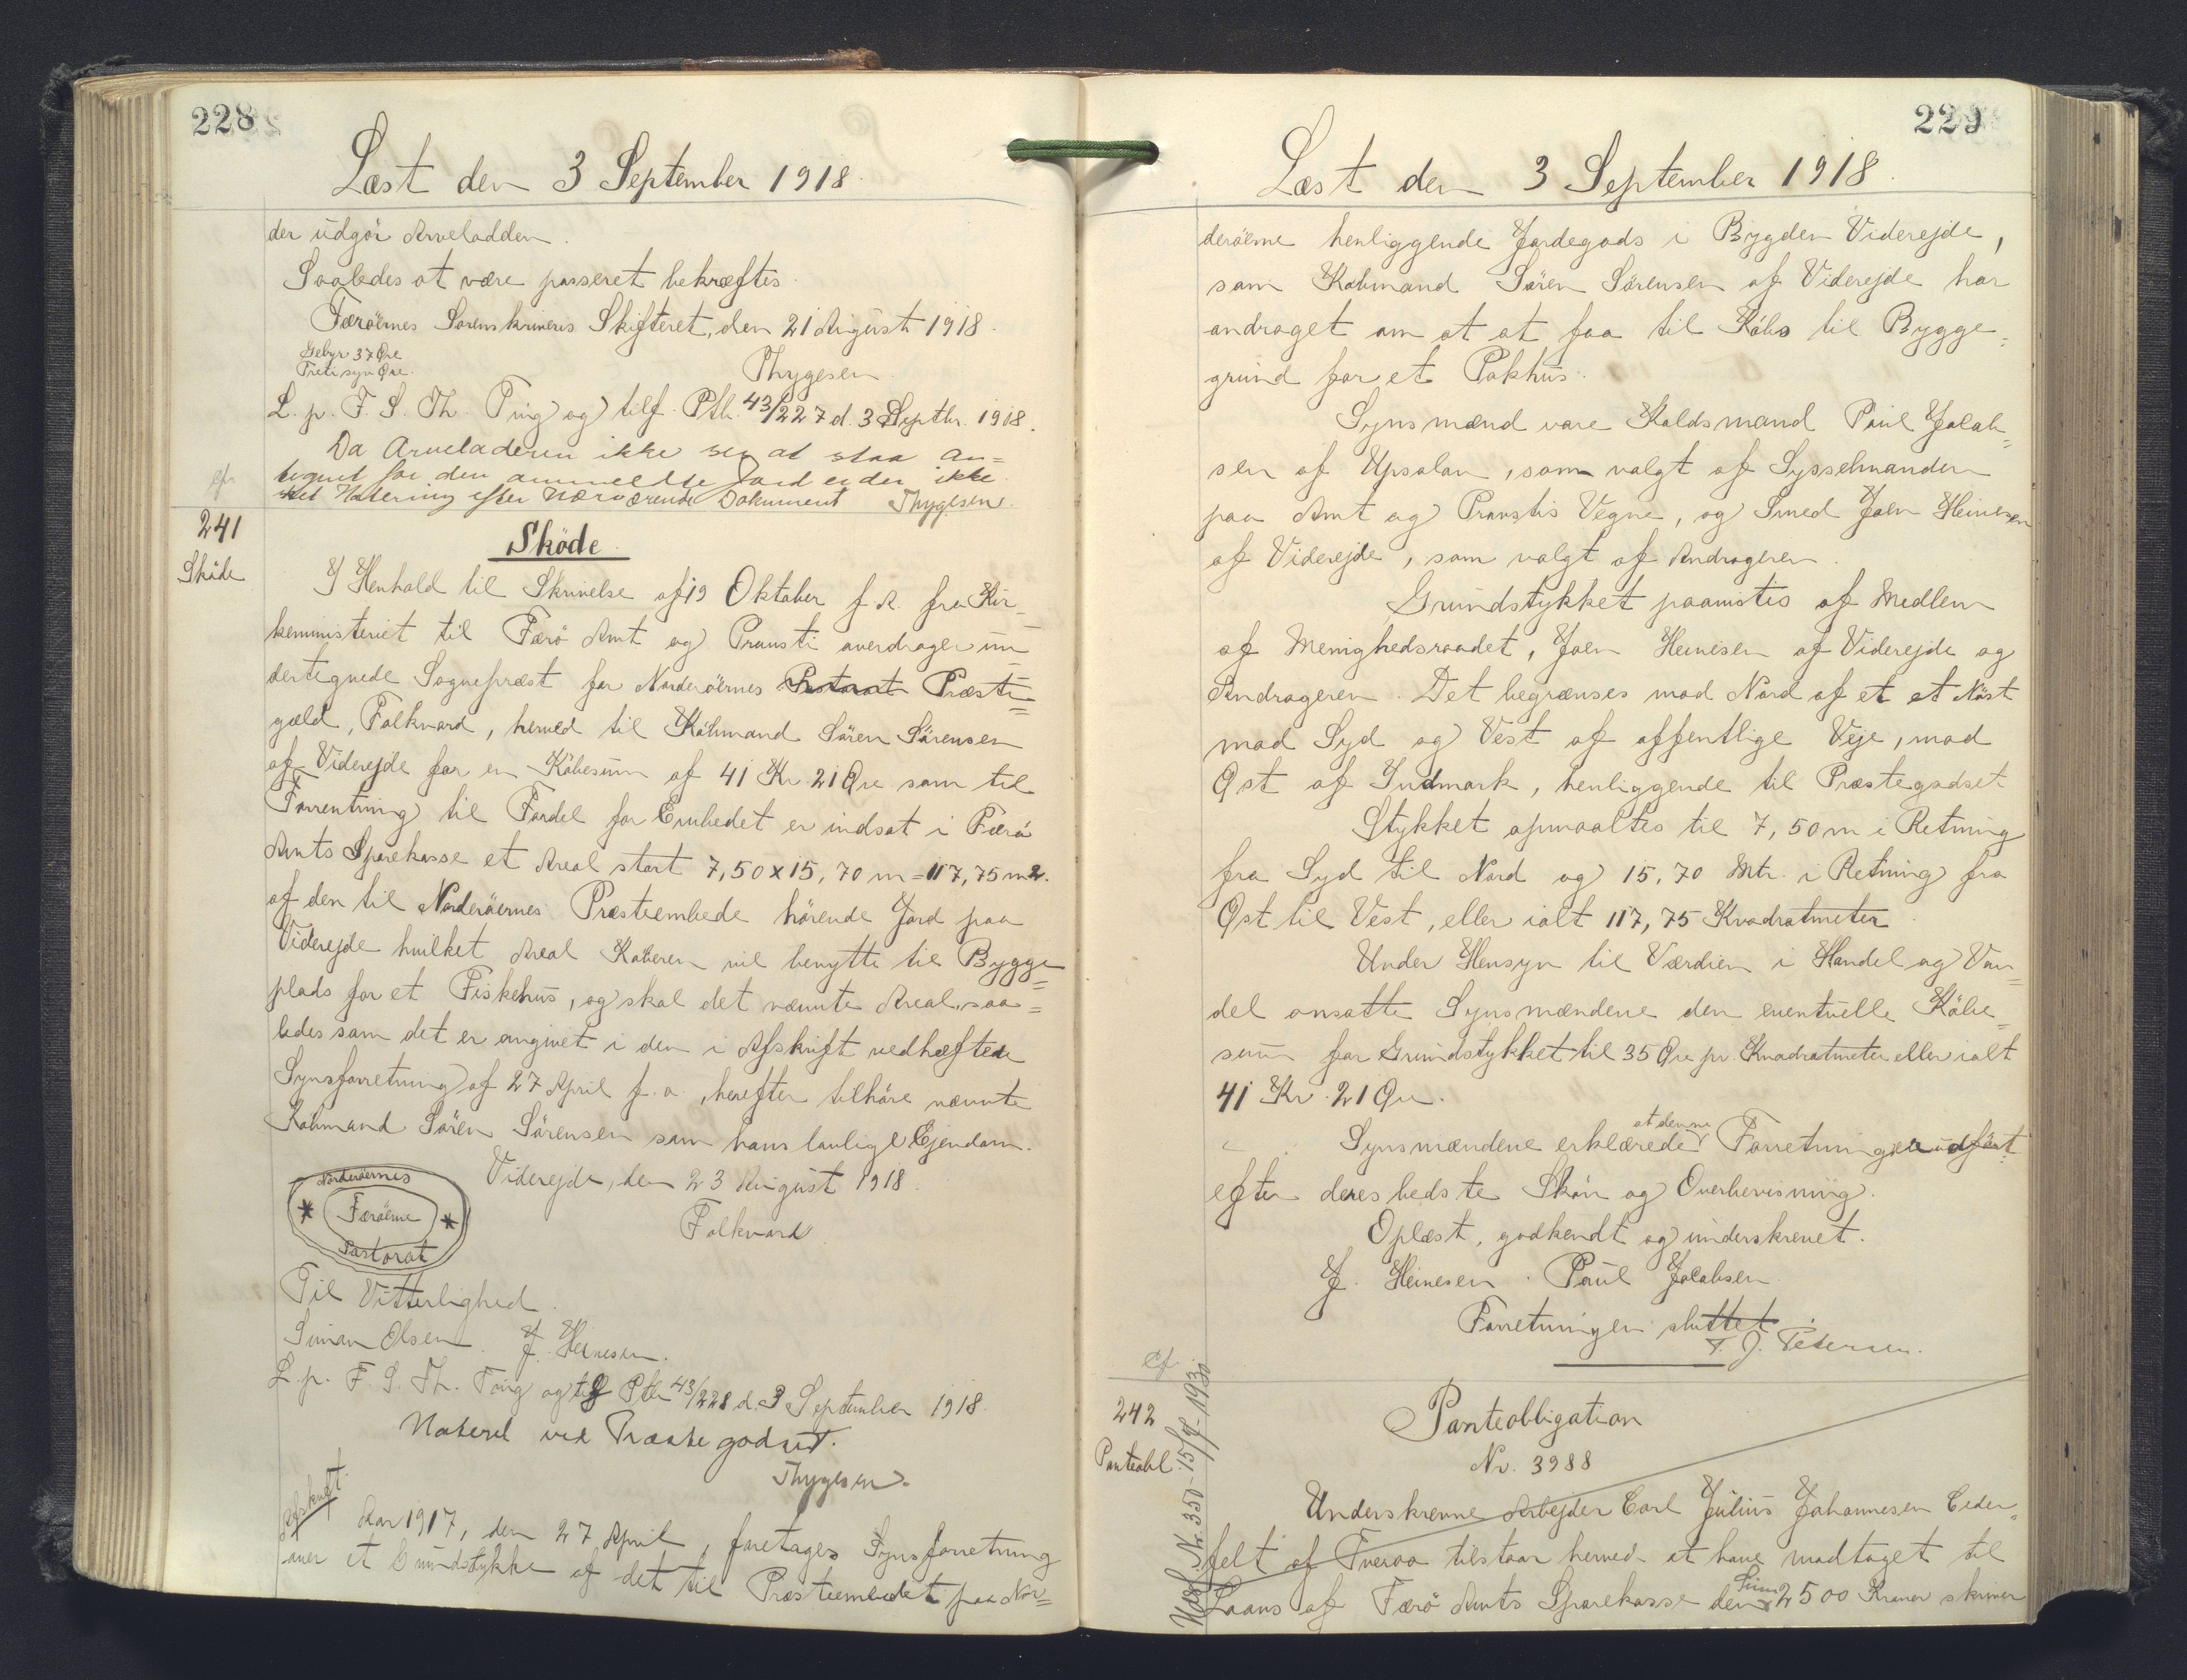 228
Læst den 3 September 1918.
der udgør Arveladden.
Saaledes at være passeret bekræftes.
Færöernes Sorenskriveris Skifteret, den 21 August 1918.
Gebyr 37 Øre
Treti syv Øre.
Thygesen
L. p. F. S. Th. Ting og tilf. Ptb. 43/227 d. 3 Septbr. 1918.
Da Arveladeren ikke ses at staa an=
tegnet for den anmeldte Jord er der ikke
sket Notering efter nærværende Dokument Thygesen.
cfr
241
Sköde
Sköde
I Henhold til Skrivelse af 19 Oktober f. A. fra Kir=
keministeriet til Færö Amt og Provsti overdrager un=
dertegnede Sognepræst for Norderöernes Pastorat Præste=
gæld, Falkvard, herved til Köbmand Sören Sörensen
af Viderejde for en Köbesum af 41 Kr. 21 Øre som til
Forrentning til Fordel for Embedet er indsat i Færö
Amts Sparekasse et Areal stort 7,50 x 15,70 m = 117,75 m2.
af den til Norderöernes Præsteembede hörende Jord paa
Viderejde hvilket Areal Köberen vil benytte til Bygge=
plads for et Fiskehus, og skal det nævnte Areal, saa=
ledes som det er angivet i den i Afskrift vedhæftede
Synsforretning af 27 April f. a., herefter tilhöre nævnte
Köbmand Sören Sörensen som hans lovlige Ejendom.
Viderejde, den 23 August 1918.
Norderöernes
Færöerne
Pastorat
Falkvard
Til Vitterlighed.
Siman Olsen. J. Heinesen.
L. p. F. S. Th. Ting og tilf Ptb 43/228 d. 3 September 1918.
Noteret ved Præstegodset.
Thygesen.
Afskrift
Aar 1917, den 27 April, foretages Synsforretning
over et Grundstykke af det til Præsteembedet paa Nor=
229
Læst den 3 September 1918.
deröerne henliggende Jordegods i Bygden Viderejde,
som Köbmand Sören Sörensen af Viderejde har
andraget om at at faa til Köbs til Bygge=
grund for et Pakhus.
Synsmænd vare Kaldsmand Paul Jacob=
sen af Upsalon, som valgt af Sysselmanden
paa Amt og Provstis Vegne, og Smed Joen Heinesen
af Viderejde, som valgt af Andrageren.
Grundstykket paavistes af Medlem
af Menighedsraadet, Joen Heinesen af Viderejde og
Andrageren. Det begrænses mod Nord af et et Nöst
mod Syd og Vest af offentlige Veje, mod
Øst af Indmark, henliggende til Præstegodset.
Stykket opmaaltes til 7,50 m i Retning
fra Syd til Nord og 15,70 Mtr. i Retning fra
Øst til Vest, eller ialt 117,75 Kvadratmeter.
Under Hensyn til Værdien i Handel og Van=
del ansatte Synsmændene den eventuelle Köbe=
sum for Grundstykket til 35 Øre pr. Kvadratmeter eller ialt
41 Kr. 21 Øre.
Synsmændene erklærede at denne Forretning er udfört
efter deres bedste Skön og Overbevisning.
Oplæst, godkendt og underskrevet.
J. Heinesen. Paul Jacobsen.
Forretningen sluttet.
T. J. Petersen.
cf.
242
Panteobl.
Udsl. Nr. 350 - 15/7 - 1930
Panteobligation
Nr. 3988
Underskrevne Arbejder Carl Julius Johannesen Ceder=
felt af Tveraa tilstaar herved at have modtaget til
Laans af Færö Amts Sparekasse den Sum 2500 Kroner skriver